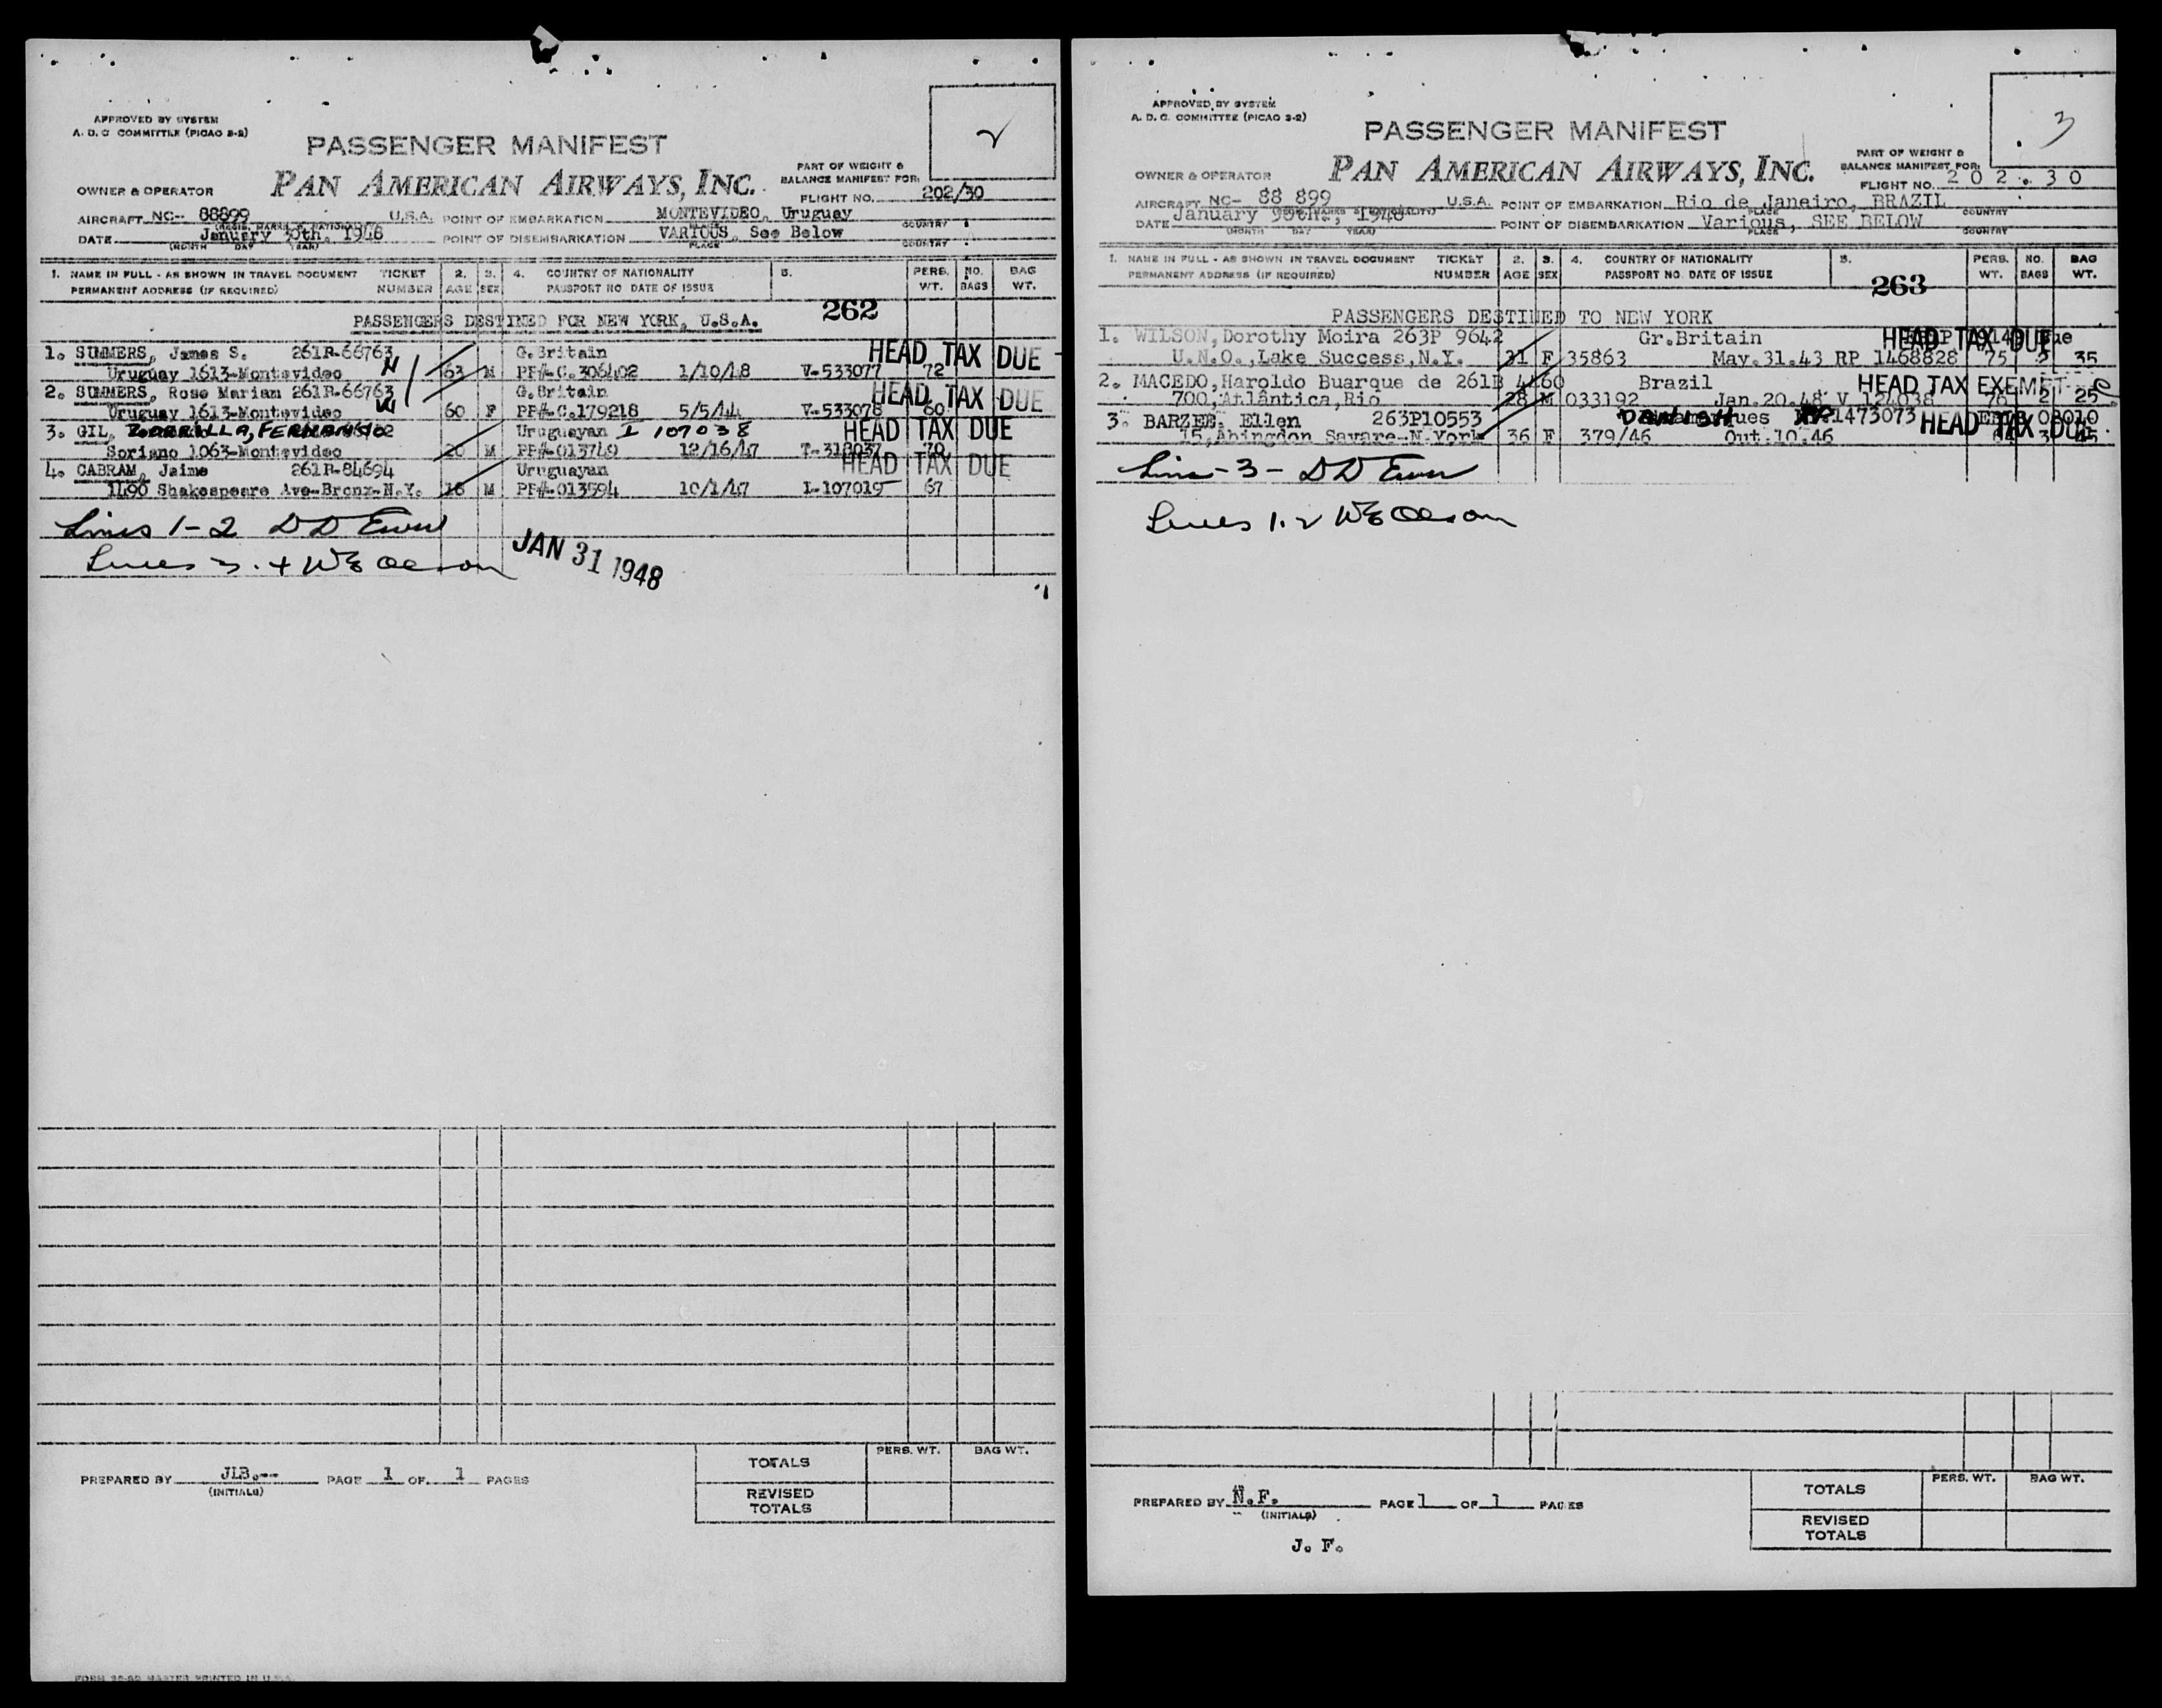 APPROVED BY SYSTEM
A. D. C. COMMITTEE (PICAO 3-2)
2
PASSENGER MANIFEST
PART OF WEIGHT &
BALANCE MANIFEST FOR:
OWNER & OPERATOR PAN AMERICAN AIRWAYS, INC.
FLIGHT NO. 202/30
AIRCRAFT NC-- 88899 U.S.A. POINT OF EMBARKATION MONTEVIDEO, Uruguay
DATE January 30th. 1948 POINT OF DISEMBARKATION VARIOUS, See Below
(MONTH DAY YEAR) PLACE COUNTRY
1. NAME IN FULL - AS SHOWN IN TRAVEL DOCUMENT TICKET 2. 3. 4. COUNTRY OF NATIONALITY 5. PERS. NO. BAG
PERMANENT ADDRESS (IF REQUIRED) NUMBER AGE SEX PASSPORT NO DATE OF ISSUE WT. BAGS WT.
262
PASSENGERS DESTINED FOR NEW YORK, U.S.A.
1. SUMMERS, James S. 261R-66763 G.Britain HEAD TAX DUE
Uruguay 1613-Montevideo 63 M PP#-C.306402 1/10/48 V-533077 72
2. SUMMERS, Rose Mariam 261R-66763 G.Britain HEAD TAX DUE
Uruguay 1613-Montevideo 60 F PP#-C.179218 5/5/44 V-533078 60
3. GIL, ZORRILLA, FERNANDO Uruguayan I 107038 HEAD TAX DUE
Soriano 1063-Montevideo 20 M PP#-013749 12/16/47 70
4. CABRAM, Jaime 261R-84694 Uruguayan HEAD TAX DUE
1490 Shakespeare Ave-Bronx-N.Y. M PP#-013594 10/1/47 I-107019 67
Lines 1-2 DD Ewer
Lines 3. 4 WE Olson
JAN 31 1948
PREPARED BY JLB.-- PAGE 1 OF 1 PAGES
(INITIALS)
TOTALS PERS. WT. BAG WT.
REVISED
TOTALS
APPROVED BY SYSTEM
A. D. C. COMMITTEE (PICAO 3-2)
3
PASSENGER MANIFEST
PART OF WEIGHT &
BALANCE MANIFEST FOR:
OWNER & OPERATOR PAN AMERICAN AIRWAYS, INC.
FLIGHT NO. 202.30
AIRCRAFT NC- 88 899 U.S.A. POINT OF EMBARKATION Rio de Janeiro, BRAZIL
PLACE COUNTRY
DATE January 30th., 1948 POINT OF DISEMBARKATION Various, SEE BELOW
(MONTH DAY YEAR) PLACE COUNTRY
1. NAME IN FULL - AS SHOWN IN TRAVEL DOCUMENT TICKET 2. 3. 4. COUNTRY OF NATIONALITY 5. PERS. NO. BAG
PERMANENT ADDRESS (IF REQUIRED) NUMBER AGE SEX PASSPORT NO. DATE OF ISSUE WT. BAGS WT.
263
PASSENGERS DESTINED TO NEW YORK
1. WILSON, Dorothy Moira 263P 9642 Gr.Britain HEAD TAX DUE
U.N.O., Lake Success, N.Y. 31 F 35863 May.31.43 RP 1468828 75 2 35
2. MACEDO, Haroldo Buarque de 261B 4460 Brazil HEAD TAX EXEMPT
700, Atlântica, Rio 28 M 033192 Jan.20.48 V 124038 76 2 25
3. BARZEE, Ellen 263P10553 DANISH RP 1473073 HEAD TAX DUE
15, Abingdon Sqware-N.York 36 F 379/46 Out.10.46 3 45
Line -3- DD Ewer
Lines 1. 2 WE Olson
PREPARED BY N.F. PAGE 1 OF 1 PAGES
(INITIALS)
J. F.
TOTALS PERS. WT. BAG WT.
REVISED
TOTALS